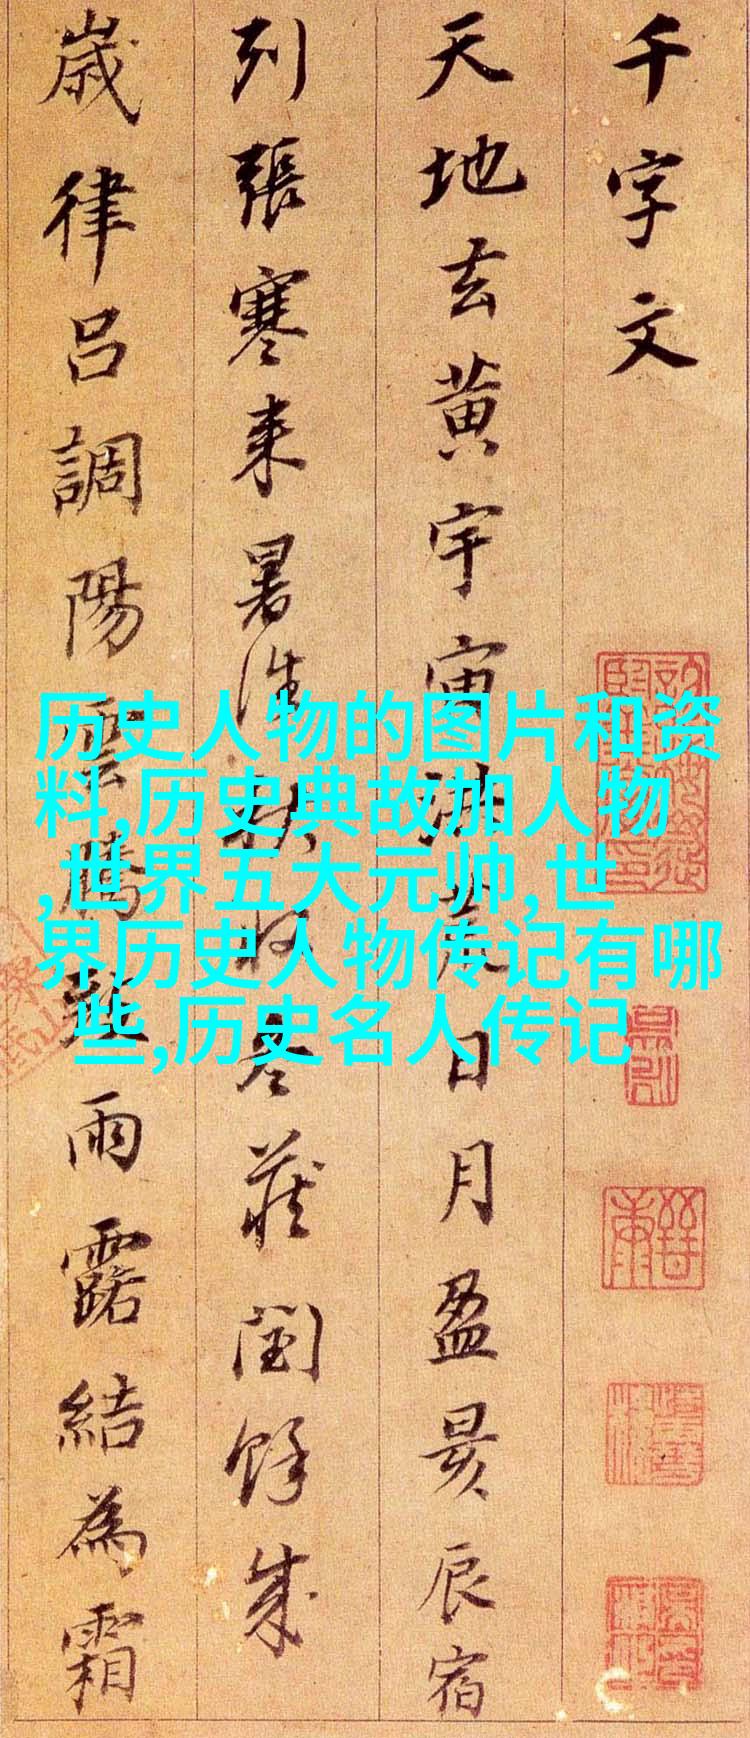 千字文
天地玄黄宇宙洪荒日月盈昃辰宿
列張寒来暑往秋收冬蔵閏餘成
歲律吕調陽雲騰致雨露結為霜
历史人物的图片和资
料,历史典故加人物
,世界五大元帅,世
界历史人物传记有哪
些,历史名人传记